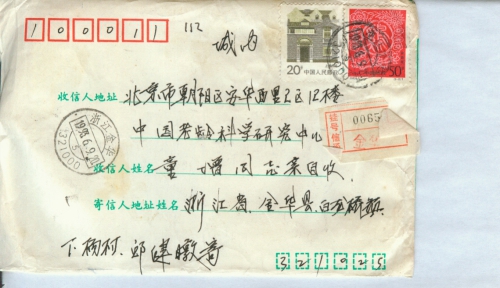 100011 112
城内
20分 中国人民邮政
50分
收信人地址 北京市朝阳区安华西里1区12楼
中国老龄科学研究中心
0065
浙江金华
1993.6.9
321000
收信人姓名 董 同志亲自收
寄信人地址姓名 浙江省金华县白龙桥镇
下杨村 邱 寄
321025